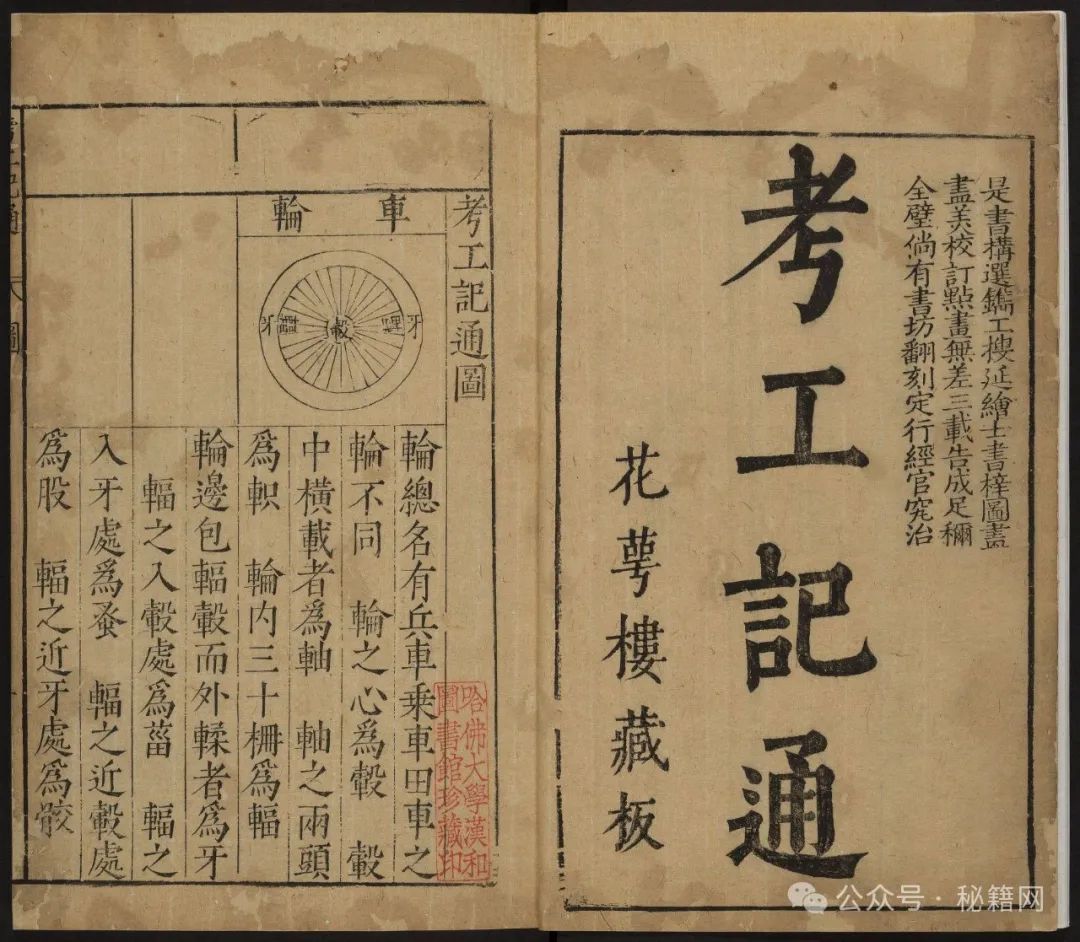 是書構選鐫工搜延繪士書梓圖畫
盡美校訂點畫無差三載告成足稱
全璧倘有書坊翻刻定行經官究治
考工記通
花萼樓藏板
考工記通圖
車輪
牙
轂
牙
輪總名有兵車乘車田車之
輪不同　輪之心爲轂　轂
中橫載者爲軸　軸之兩頭
爲軹　輪內三十柵爲輻
輪邊包輻轂而外輮者爲牙
輻之入轂處爲菑　輻之
入牙處爲蚤　輻之近轂處
爲股　輻之近牙處爲骹
哈佛大學漢和
圖書館珍藏印
公众号·秘籍网